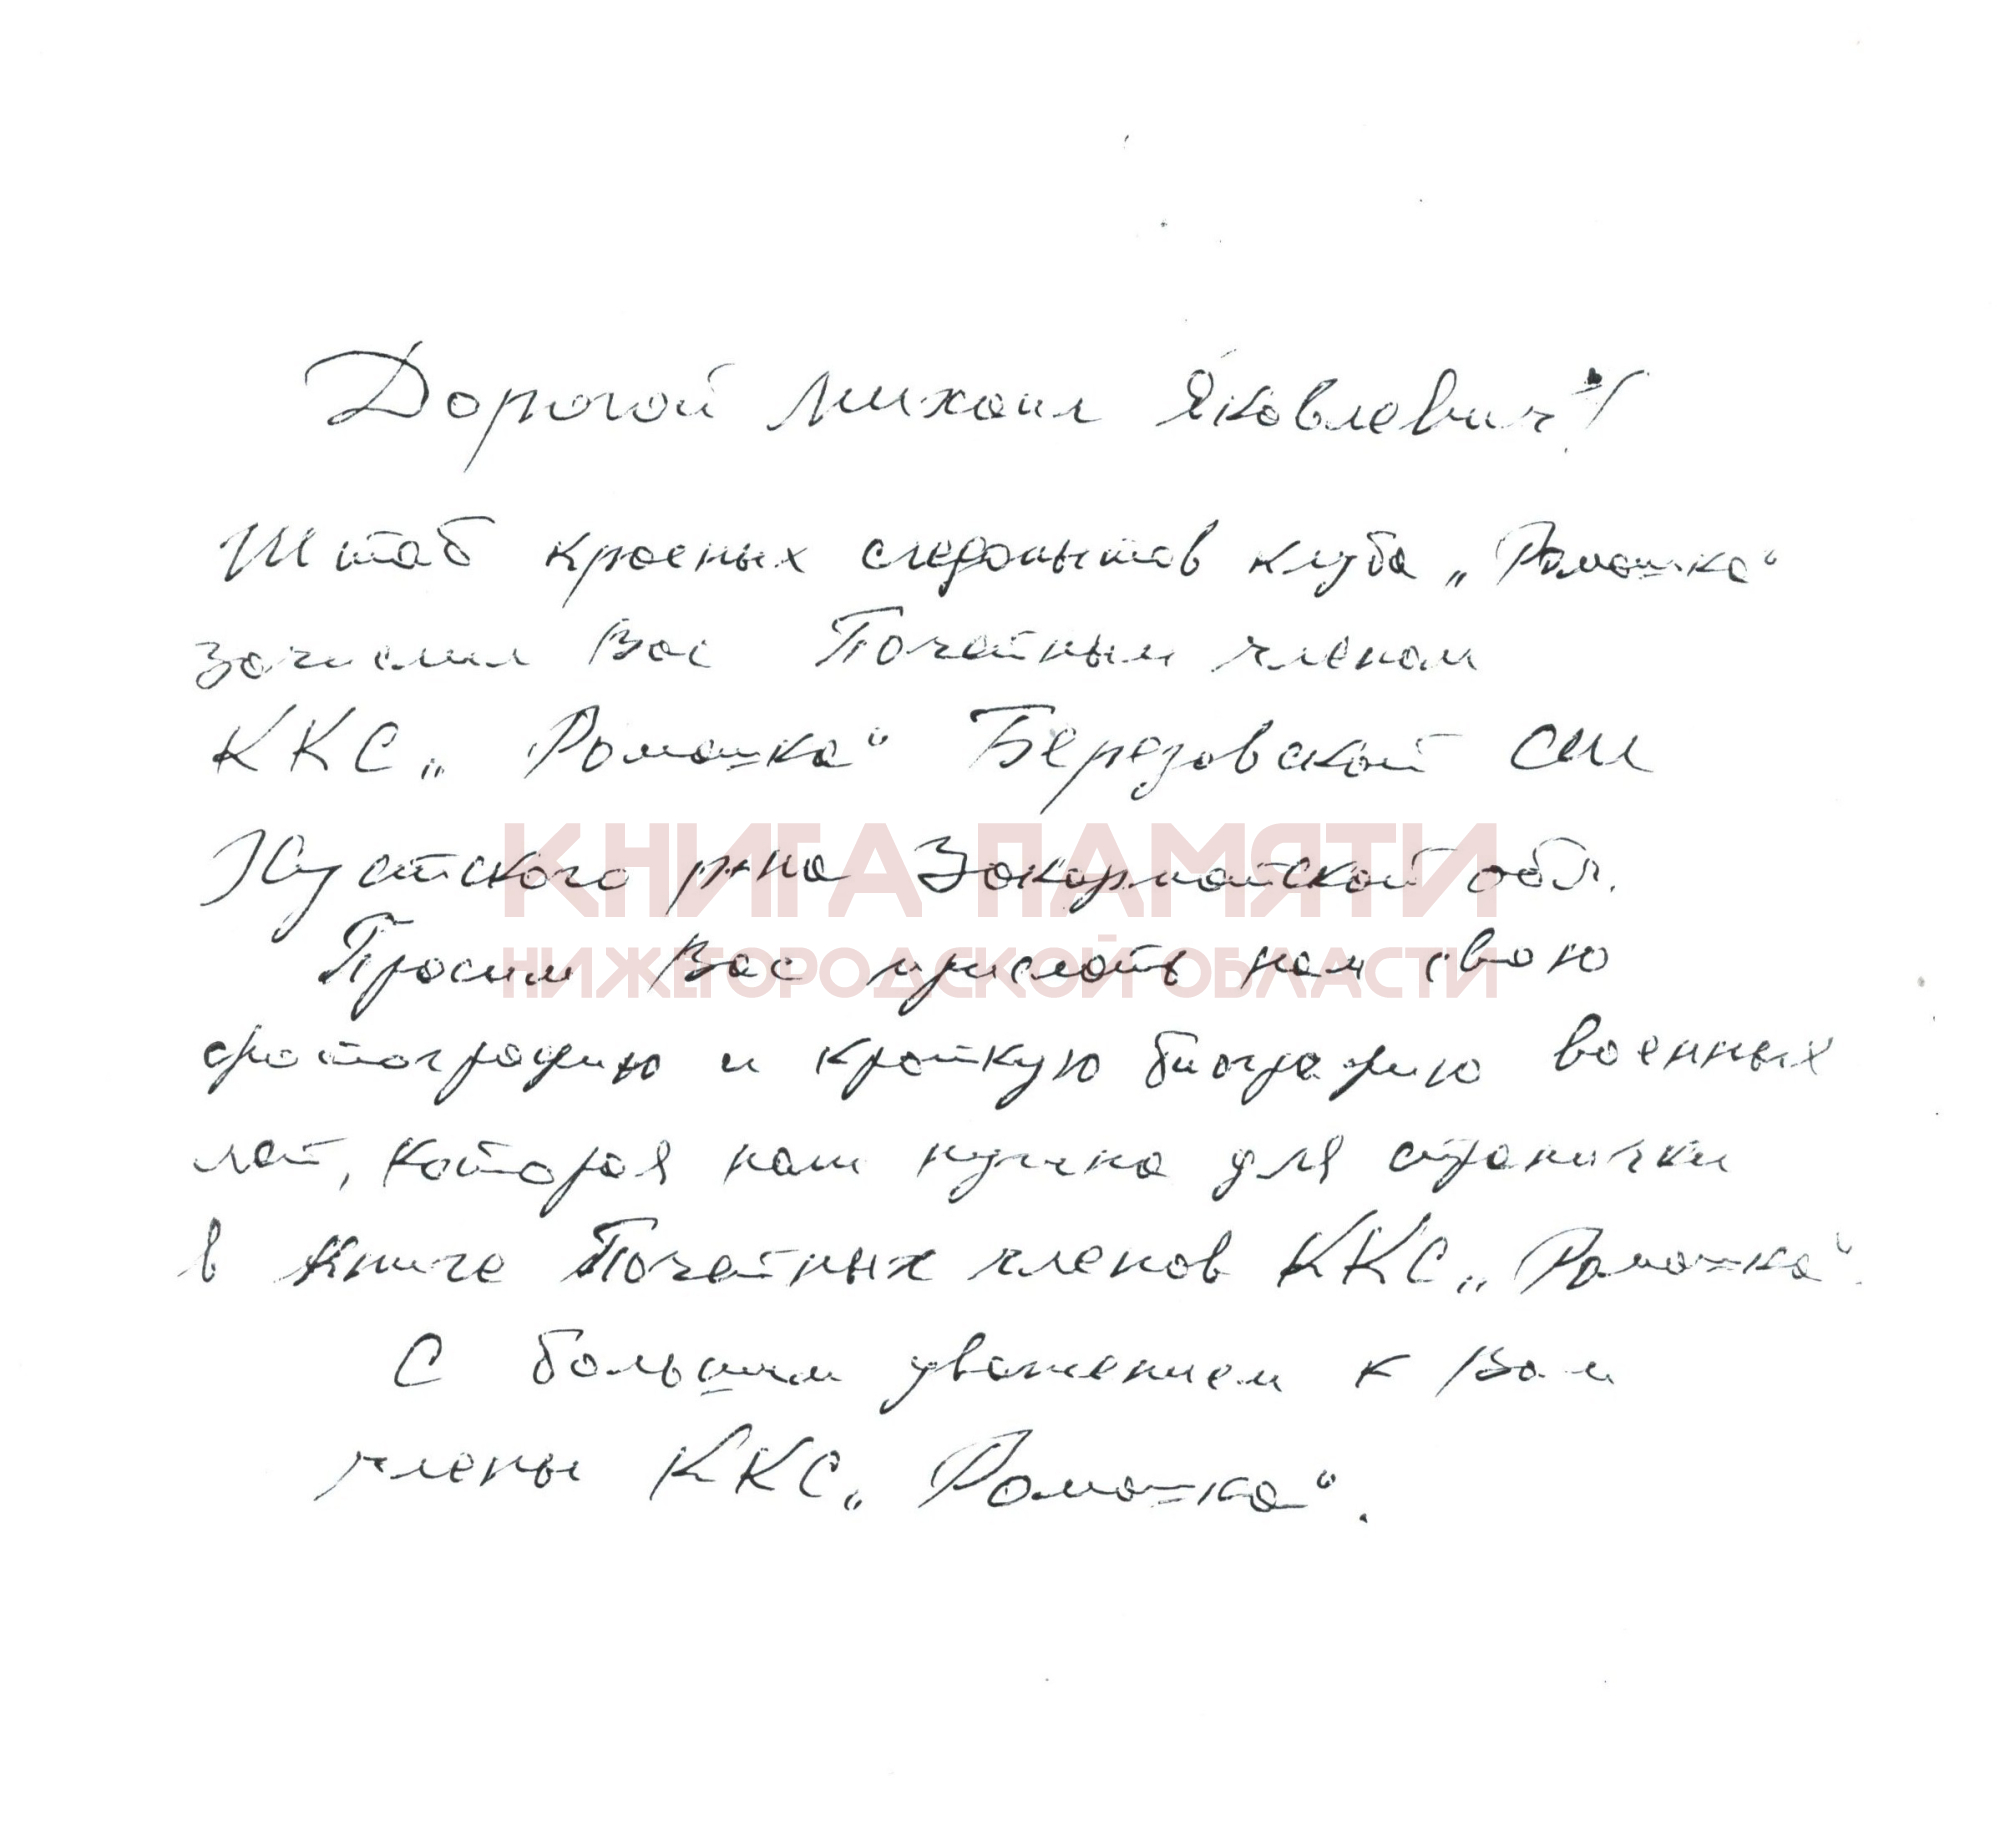 Дорогой Михаил Яковлевич!
Штаб красных следопытов клуба „Ромашка“
зачислил Вас Почетным членом
ККС „Ромашка“ Березовской СШ
Хустского р-на Закарпатской обл.
КНИГА ПАМЯТИ
НИЖЕГОРОДСКОЙ ОБЛАСТИ
Просим Вас прислать нам свою
фотографию и краткую биографию военных
лет, которая нам нужна для странички
в Книге Почетных членов ККС „Ромашка“.
С большим уважением к Вам
члены ККС „Ромашка“.